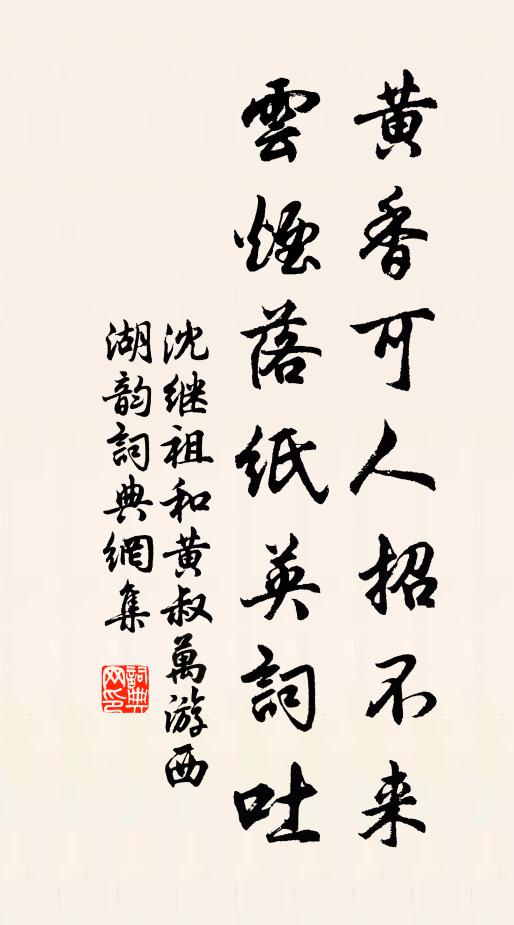 黄香可人招不来
雲煙落紙英詞吐
沈継祖和黄叔萬游西
湖韵詞典網集
詞典
网印